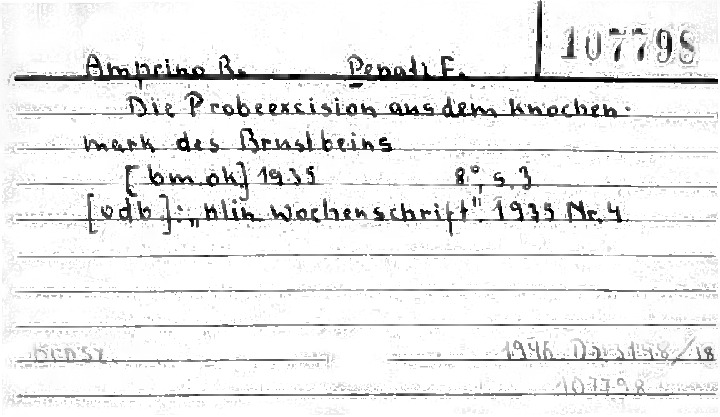 107798
Amprino R. Penati F.
Die Probeexcision aus dem Knochen-
mark des Brustbeins
[bm. ok.] 1935 8°, s. 3
[odb]: „Klin Wochenschrift". 1935 Nr. 4
1946 D
107798